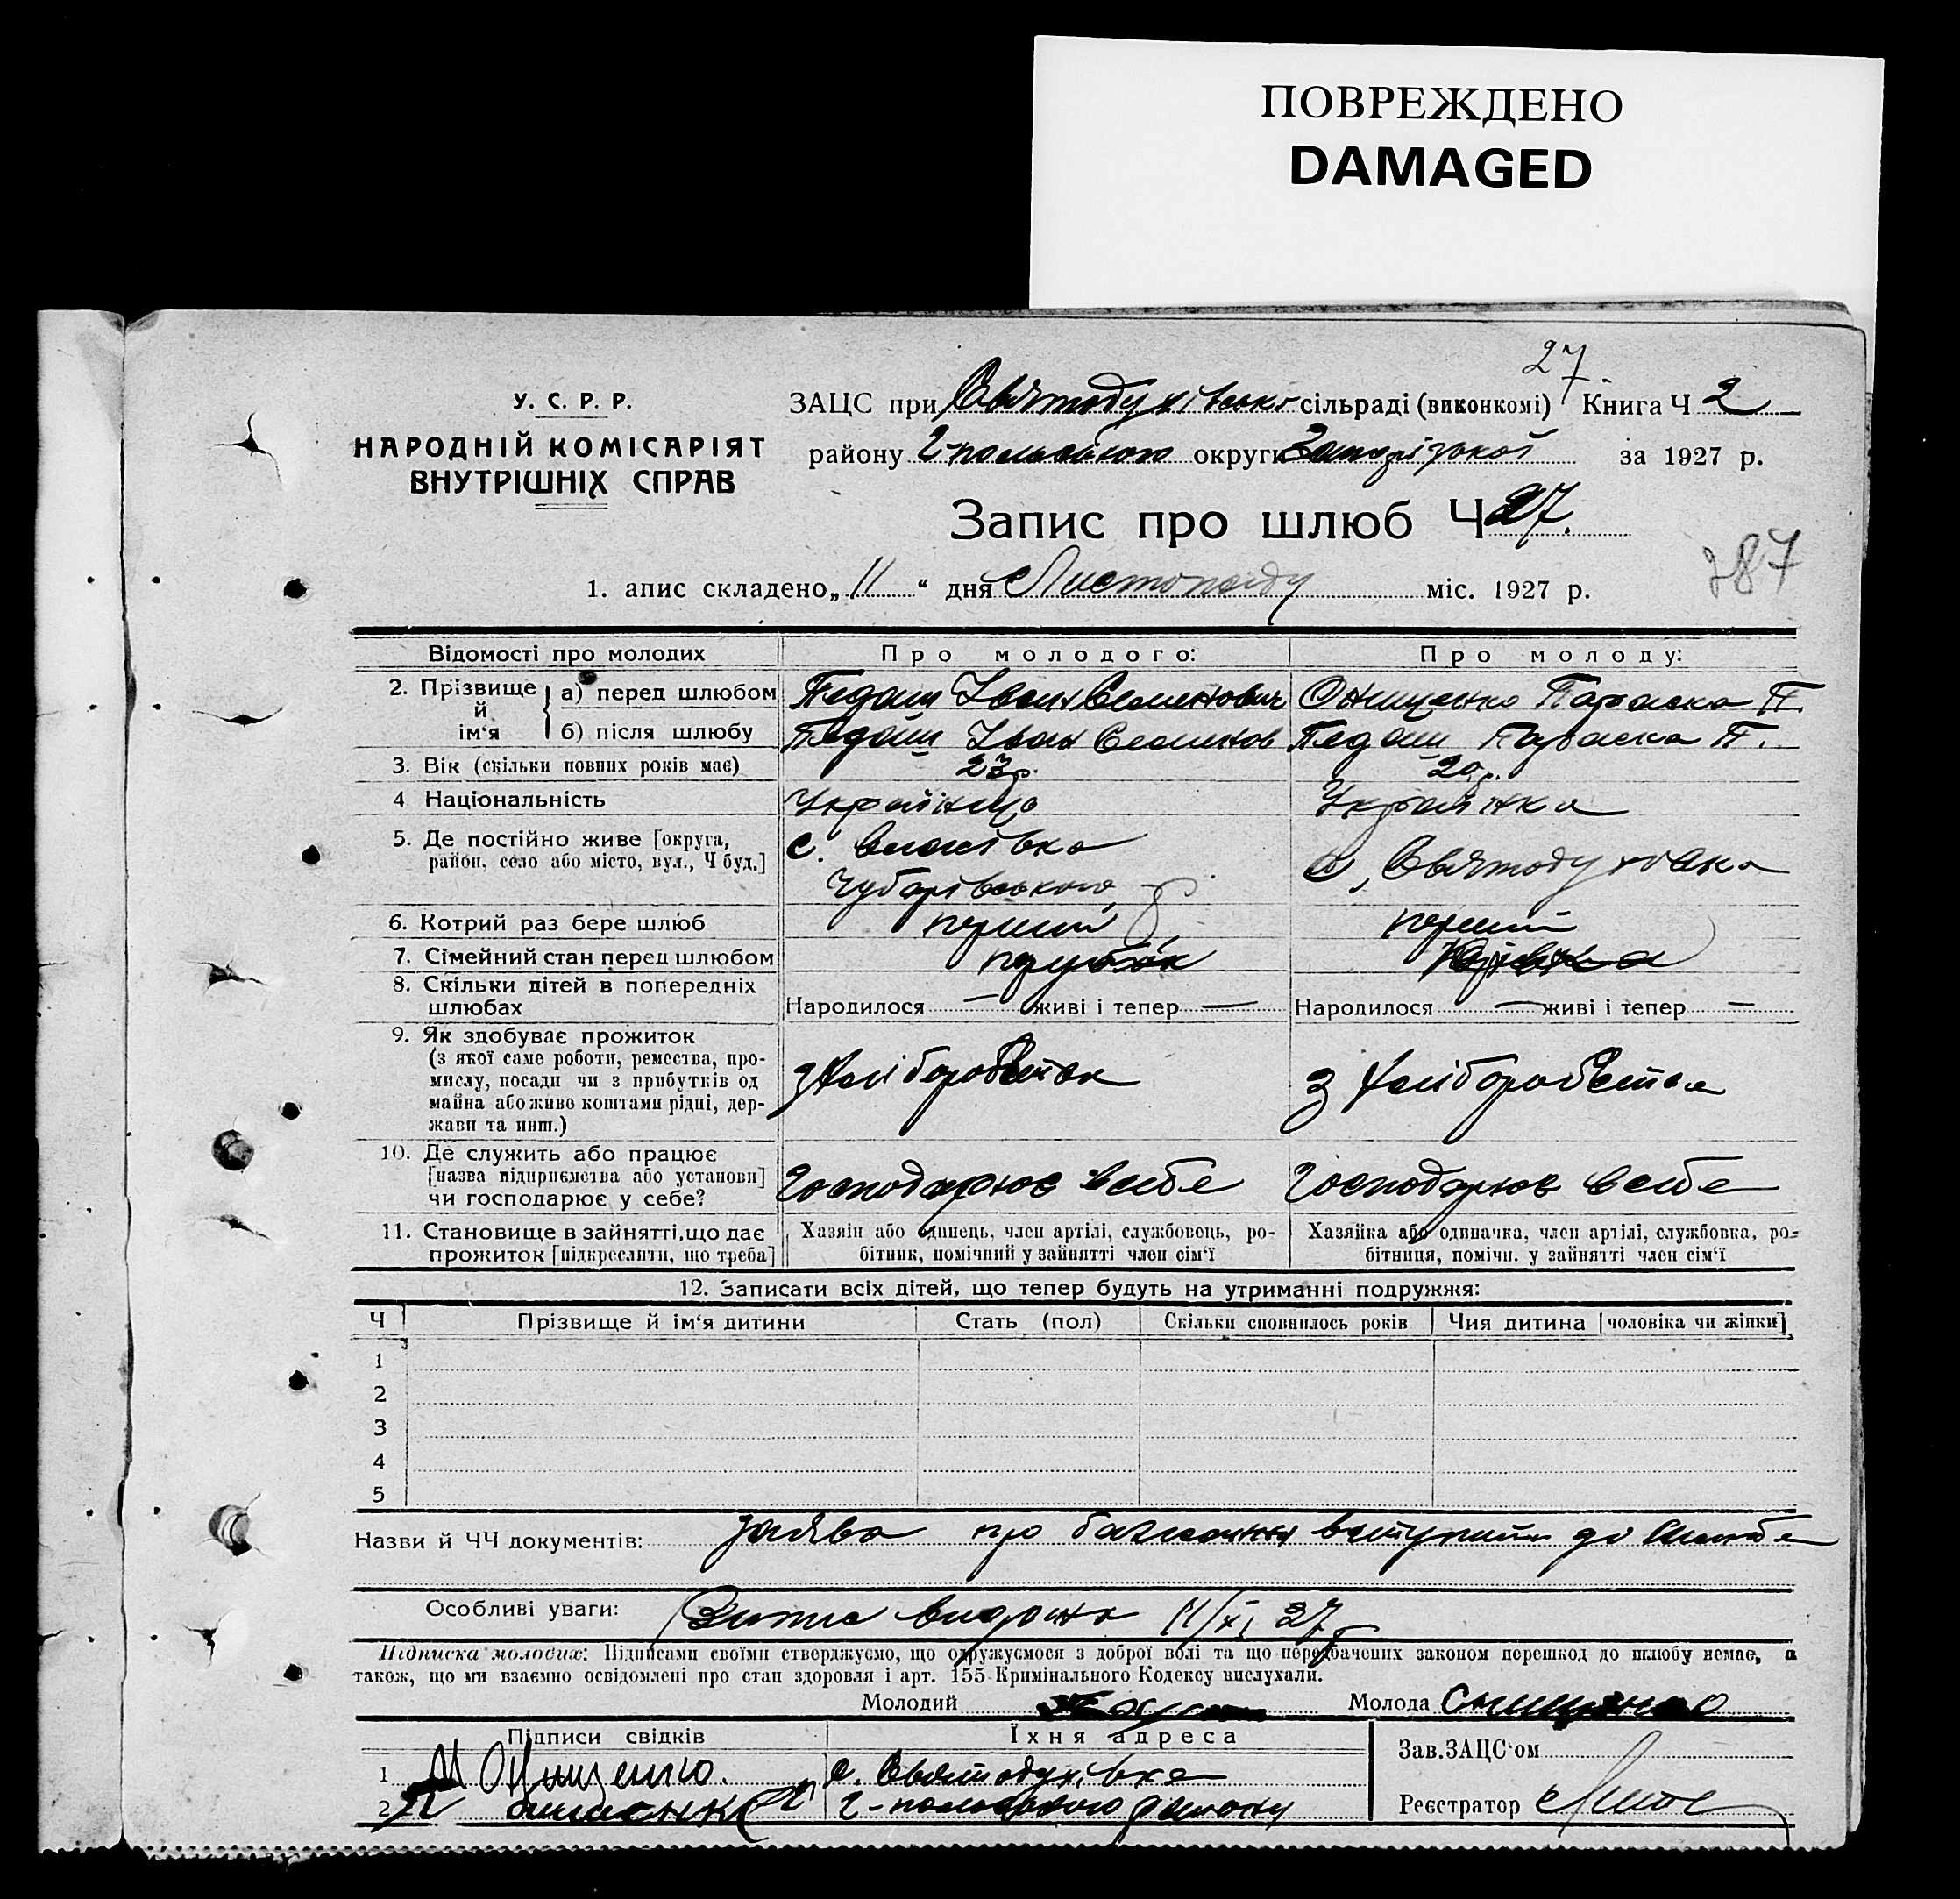 ПОВРЕЖДЕНО
DAMAGED
27.
У. С. Р. Р.
НАРОДНІЙ КОМІСАРІЯТ
ВНУТРІШНІХ СПРАВ
ЗАЦС при Святодухівські сільраді (виконкомі) Книга Ч 2
району Г-польового округи Запорізької за 1927 р.
Запис про шлюб Ч 27.
387
1. апис складено „ 11 “ дня Листопаду міс. 1927 р.
Відомості про молодих Про молодого: Про молоду:
2. Прізвище й ім‘я
а) перед шлюбом Педаш Іван Семенович Онищенко Параска П.
б) після шлюбу Педаш Іван Семенов Педаш Параска П.
3. Вік (скільки повних років має) 23 р. 20 р.
4 Національність Українць Українка
5. Де постійно живе [округа, район, село або місто, вул., Ч буд.] с. Чубарівського с. Святодухівка
6. Котрий раз бере шлюб перший перший
7. Сімейний стан перед шлюбом парубок
8. Скільки дітей в попередніх шлюбах Народилося — живі і тепер — Народилося — живі і тепер —
9. Як здобуває прожиток
(з якої саме роботи, ремества, про-
мислу, посади чи з прибутків од
майна або живе коштами рідні, дер-
жави та инш.)
з хліборобства з хліборобства
10. Де служить або працює
[назва підприємства або установи]
чи господарює у себе?
Господарює в себе Господарює в себе
11. Становище в зайнятті, що дає
прожиток [підкреслити, що треба]
Хазяїн або одинець, член артілі, службовець, ро-
бітник, помічний у зайнятті член сім‘ї
Хазяйка або одиначка, член артілі, службовка, ро-
бітниця, помічн. у зайнятті член сім‘ї
12. Записати всіх дітей, що тепер будуть на утриманні подружжя:
Ч Прізвище й ім‘я дитини Стать (пол) Скільки сповнилось років Чия дитина [чоловіка чи жінки]
1
2
3
4
5
Назви й ЧЧ документів: заява про бажання вступити до шлюбе
Особливі уваги: Витис видано 11/XI 27 р
Підписка молодих: Підписами своїми стверджуємо, що одружуємося з доброї волі та що передбачених законом перешкод до шлюбу немає, а
також, що ми взаємно освідомлені про стан здоровля і арт. 155 Кримінального Кодексу вислухали.
Молодий Молода Онищенко
Підписи свідків Їхня адреса
Зав. ЗАЦС‘ом
1 М Онищенко. с. Святодухівка
2 Г-польового району
Реєстратор